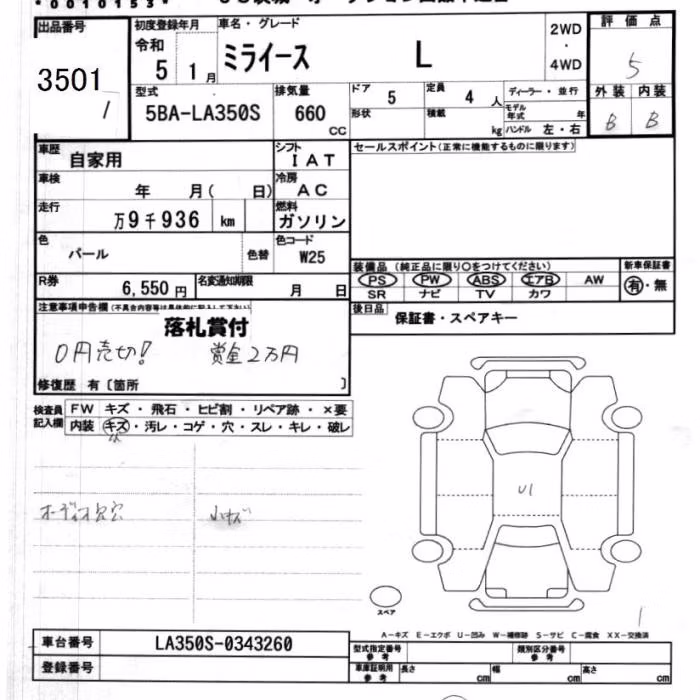 *0010153*
出品番号
3501
1
初度登録年月
令和
5 1月
車名・グレード
ミライース L
2WD
・
4WD
評価点
5
外装 内装
B B
型式
5BA-LA350S
排気量
660
CC
ドア
5
定員
4人
形状
積載
kg
ディーラー・並行
モデル年式 年
ハンドル 左・右
車歴
自家用
シフト
IAT
セールスポイント(正常に機能するものに限ります)
車検
年 月( 日)
冷房
AC
走行
万9千936 km
燃料
ガソリン
色
パール
色替
色コード
W25
装備品 (純正品に限り○をつけてください)
PS PW ABS エアB AW
SR ナビ TV カワ
新車保証書
有・無
R券
6,550円
名変通知期限
月 日
後日品
保証書・スペアキー
注意事項申告欄(不具合内容等は具体的に記入して下さい)
落札賞付
0円売切! 賞金2万円
修復歴 有〔箇所 〕
検査員記入欄
FW キズ・飛石・ヒビ割・リペア跡・×要
内装 キズ・汚レ・コゲ・穴・スレ・キレ・破レ
オーディオ欠穴
小キズ
U1
スペア
1
A-キズ E-エクボ U-凹み W-補修跡 S-サビ C-腐食 XX-交換済
車台番号 LA350S-0343260
登録番号
型式指定番号
参考
類別区分番号
参考
車庫証明用
参考
長さ cm 幅 cm 高さ cm